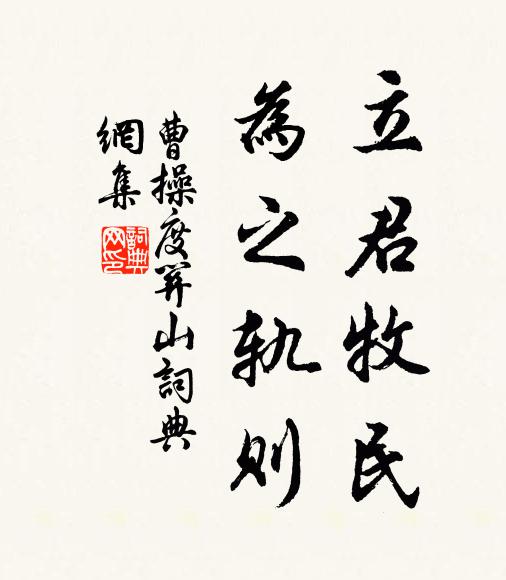 立君牧民
為之軌則
曹操度關山詞典
網集
詞典
网印